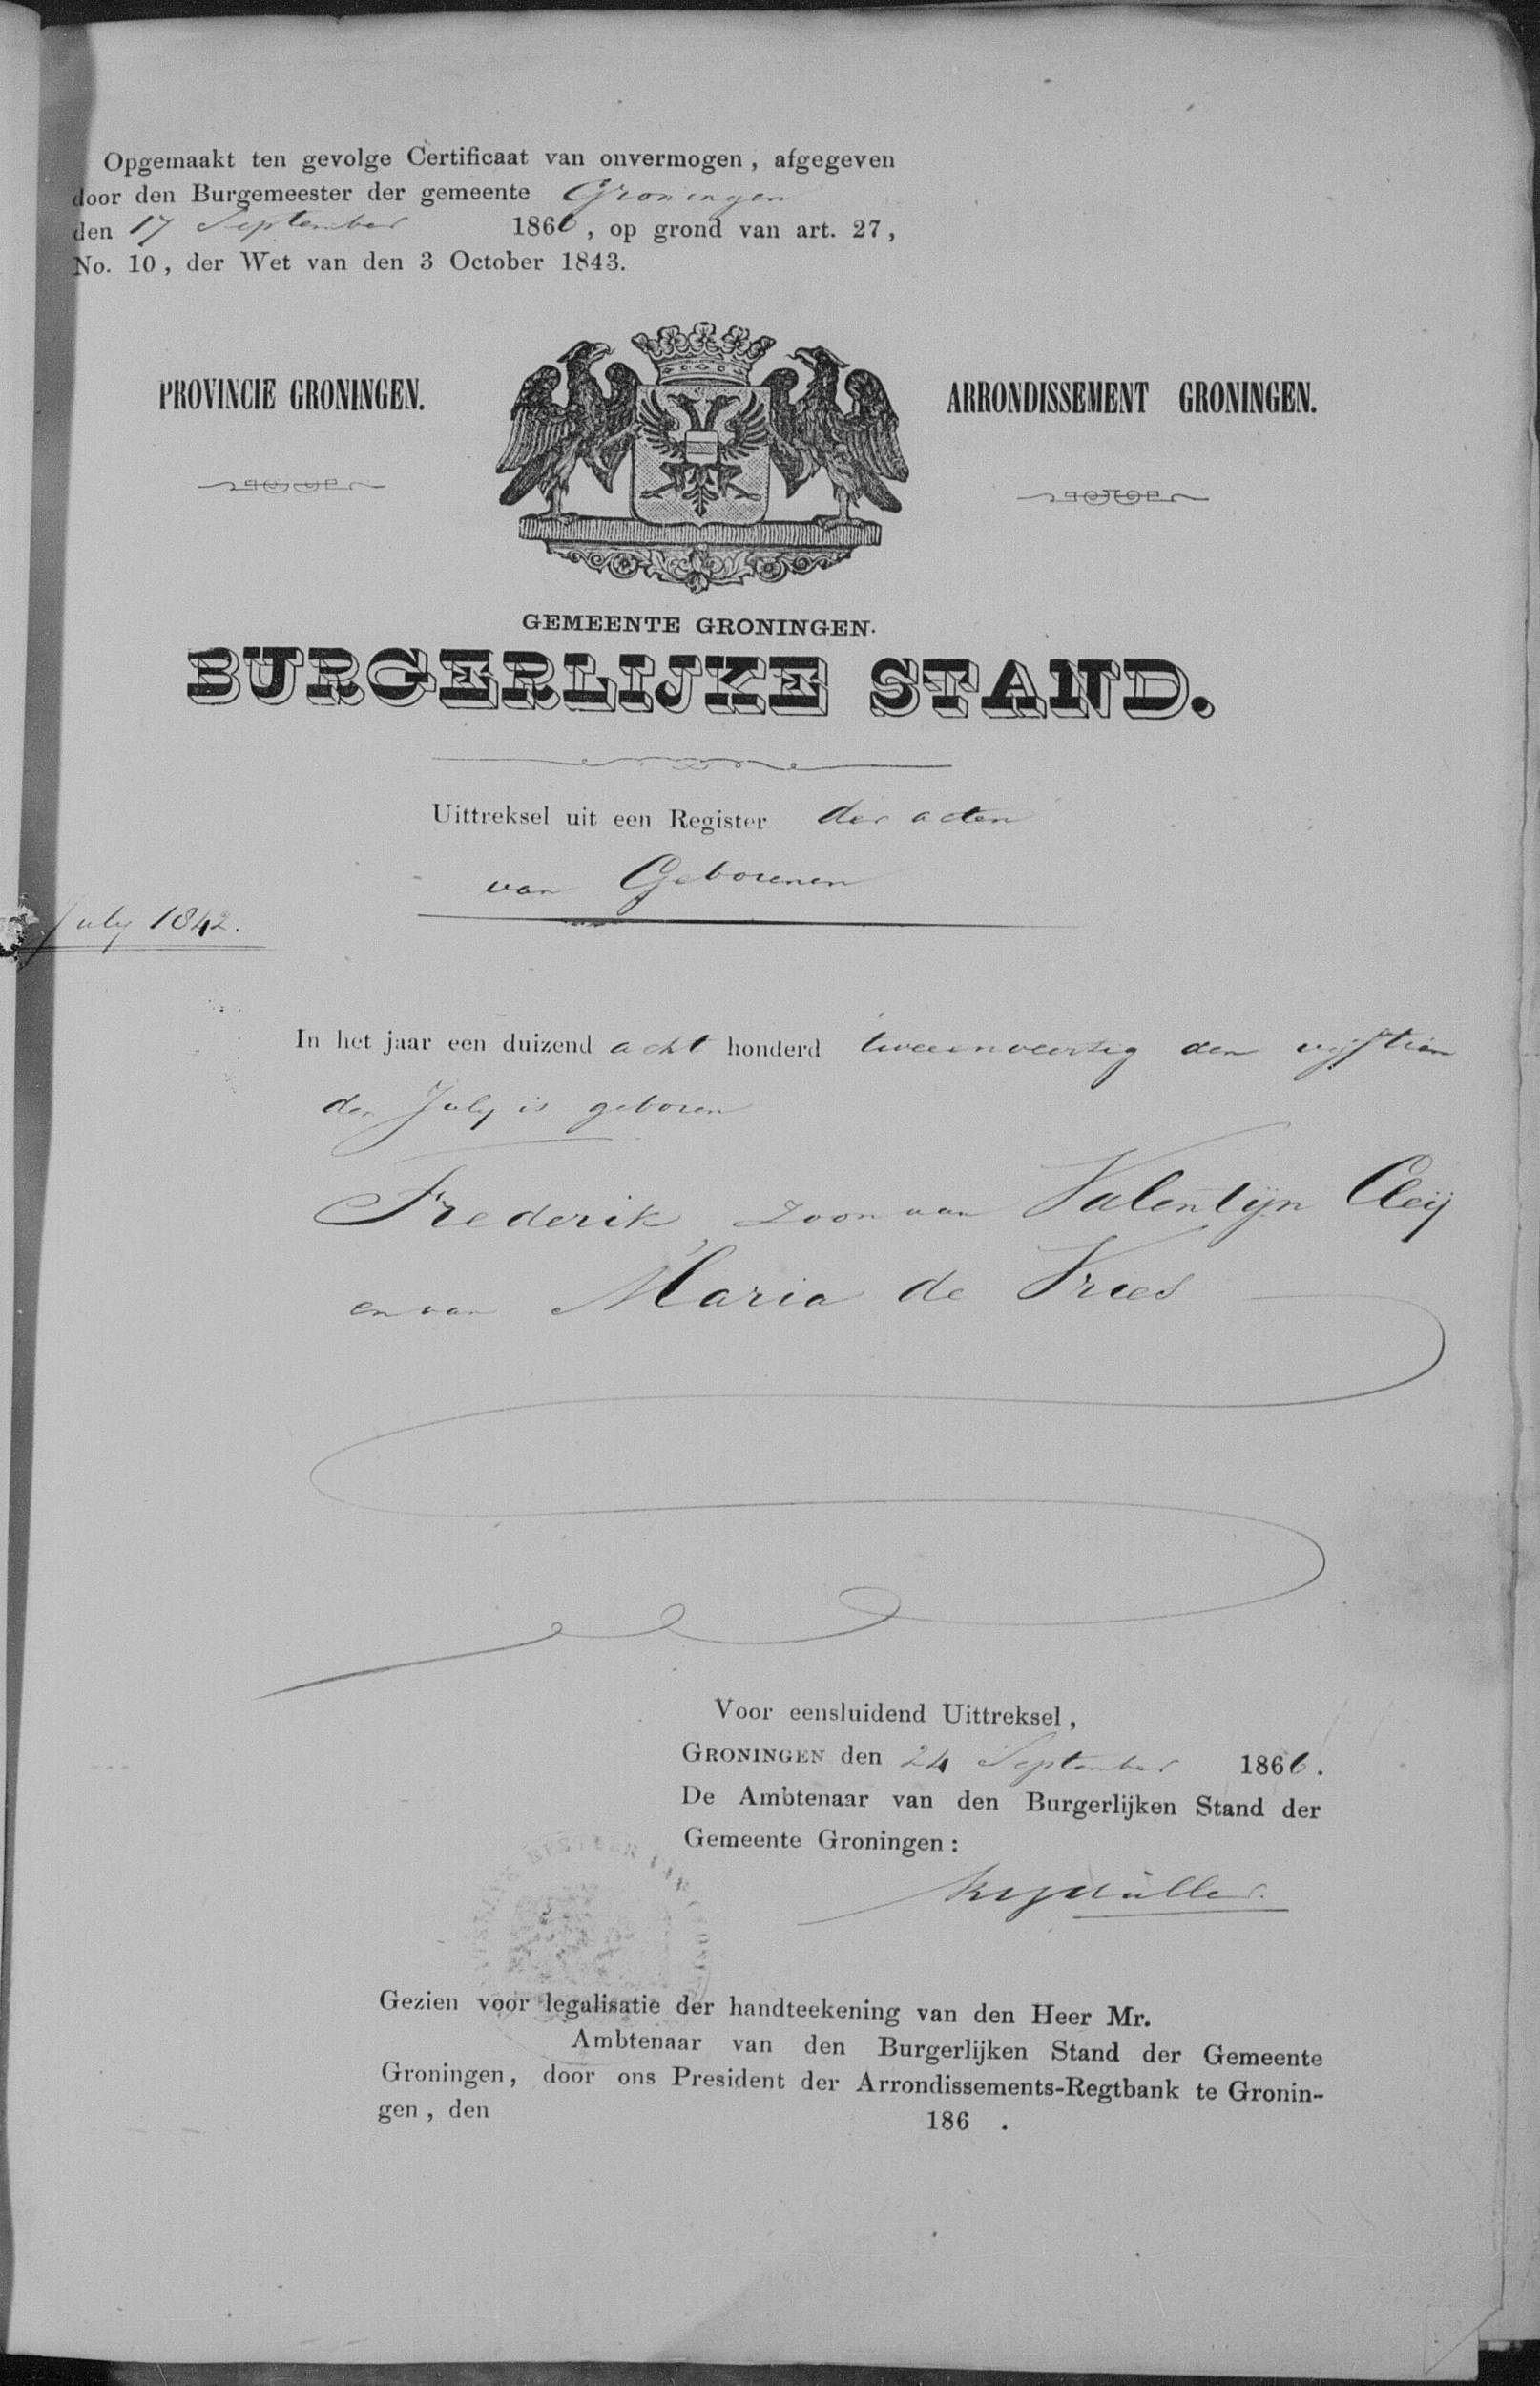 Opgemaakt ten gevolge Certificaat van onvermogen, afgegeven
door den Burgemeester der gemeente Groningen
den 17 September 1866, op grond van art. 27,
No. 10, der Wet van den 3 October 1843.
PROVINCIE GRONINGEN.
ARRONDISSEMENT GRONINGEN.
GEMEENTE GRONINGEN.
BURGERLIJKE STAND.
Uittreksel uit een Register der acten
van Geborenen
July 1842.
In het jaar een duizend acht honderd tweeenveertig den vijftien
den July is geboren
Frederik, zoon van Valentijn Cleij
en van Maria de Vries
Voor eensluidend Uittreksel,
GRONINGEN den 24 September 1866.
De Ambtenaar van den Burgerlijken Stand der
Gemeente Groningen:
Müller.
Gezien voor legalisatie der handteekening van den Heer Mr.
Ambtenaar van den Burgerlijken Stand der Gemeente
Groningen, door ons President der Arrondissements-Regtbank te Gronin-
gen, den 186 .